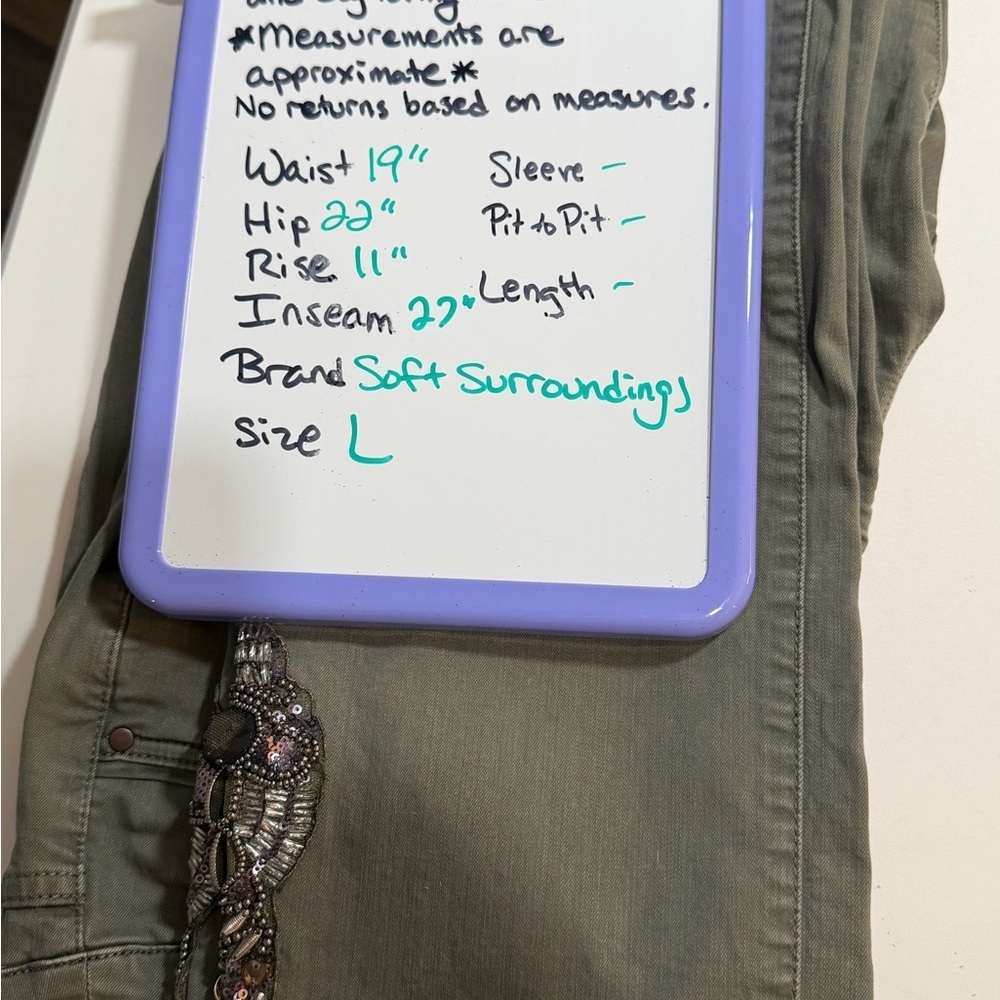 *Measurements are
approximate*
No returns based on measures.
Waist 19" Sleeve -
Hip 22" Pit to Pit -
Rise 11"
Inseam 27" Length -
Brand Soft Surroundings
Size L